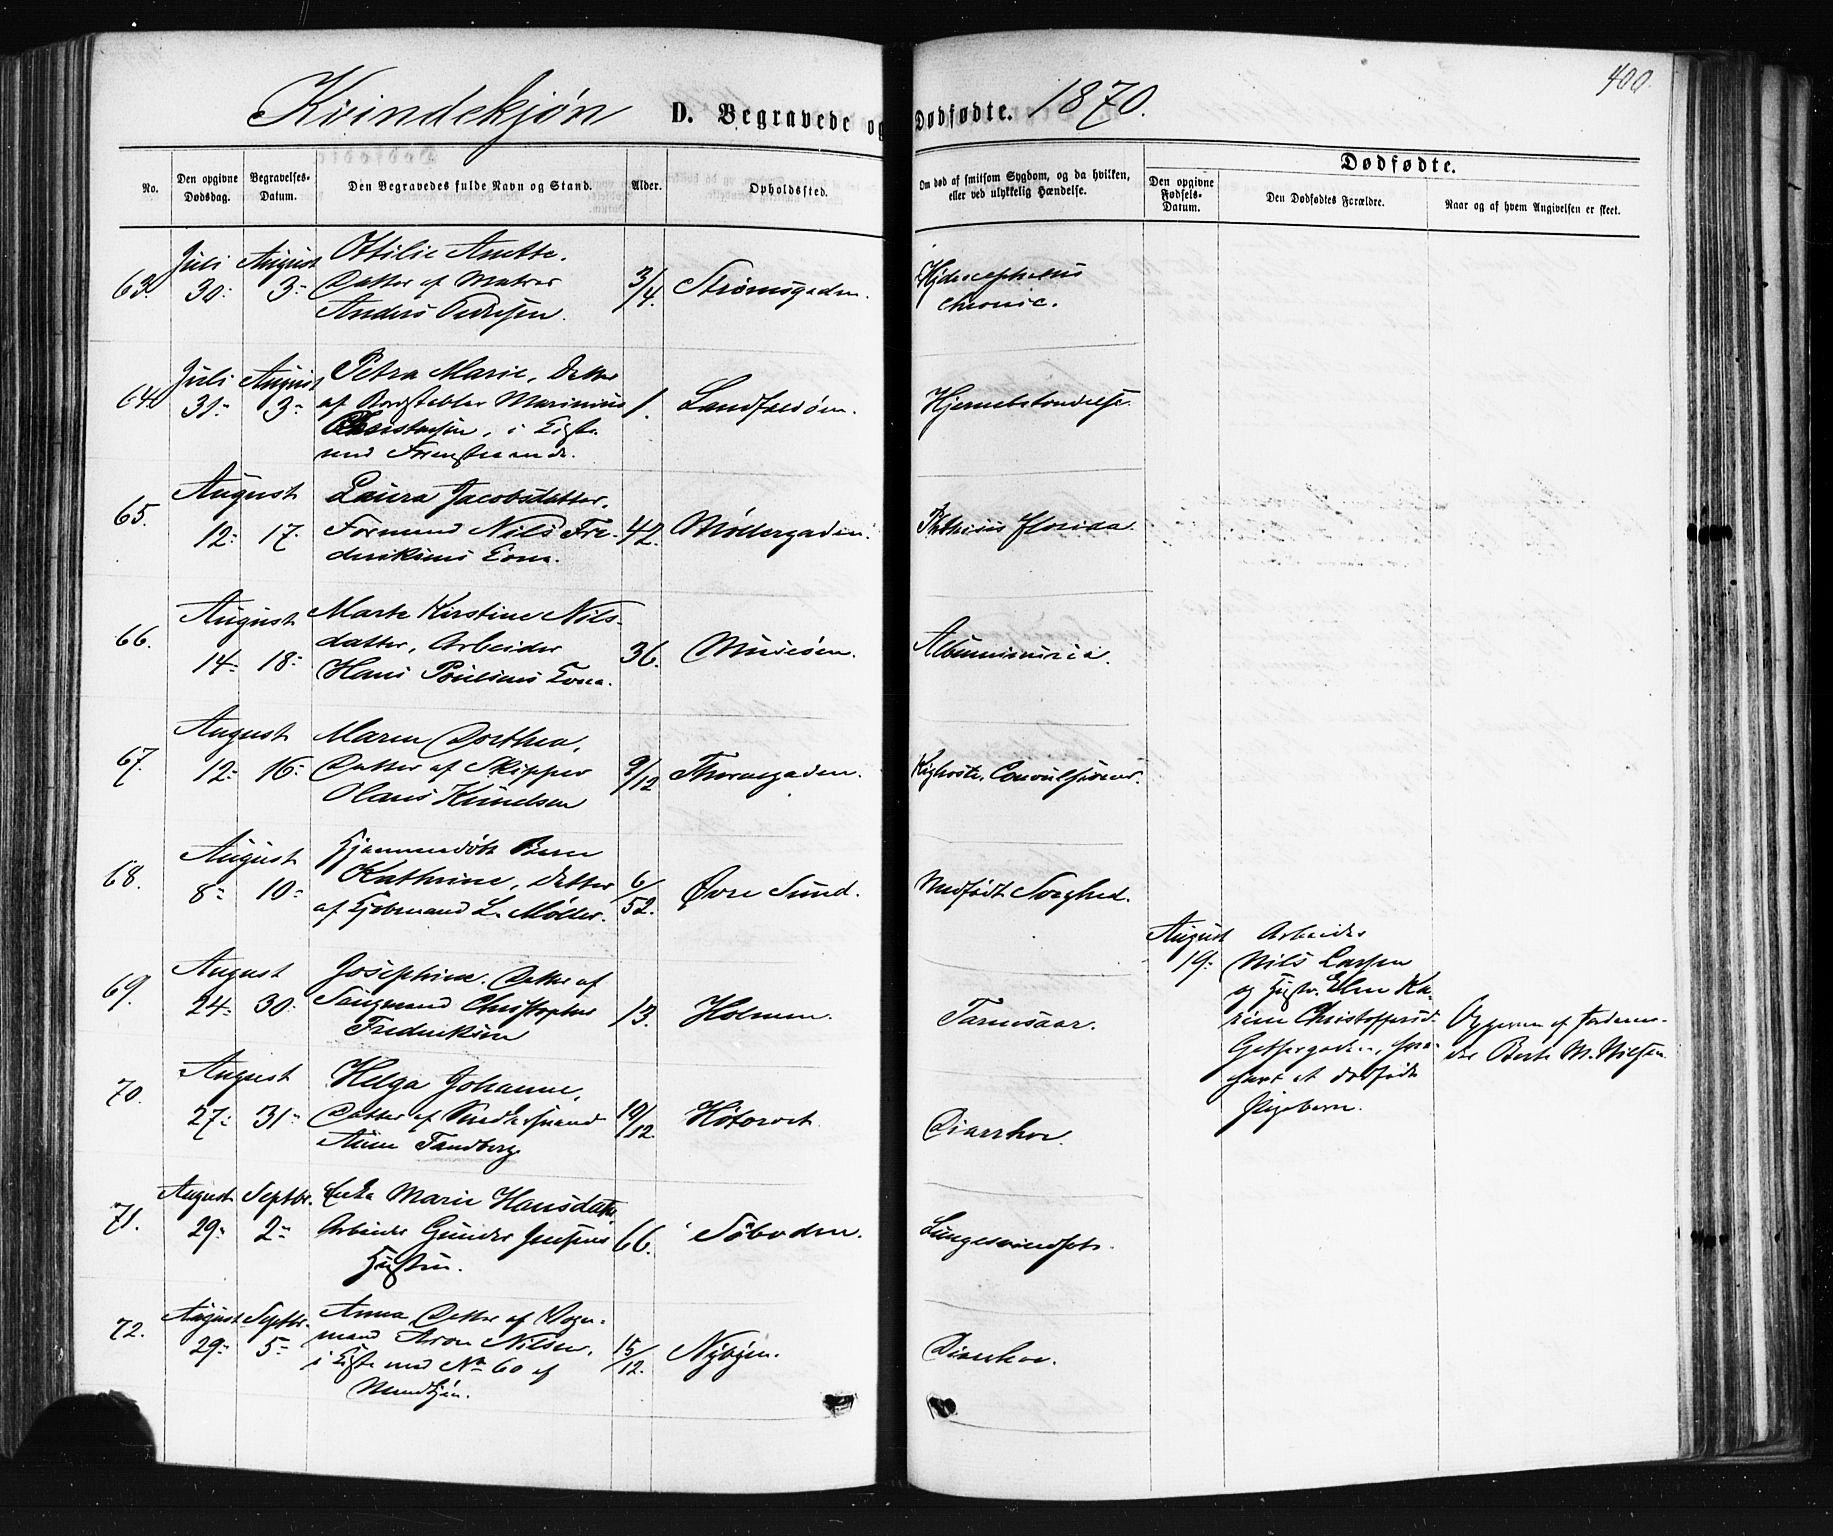 400.
Kvindekjøn D. Begravede og Dødfødte. 1870.
No.
Den opgivne Dødsdag.
Begravelses-Datum.
Den Begravedes fulde Navn og Stand.
Alder.
Opholdssted.
Om død af smitsom Sygdom, og da hvilken, eller ved ulykkelig Hændelse.
Dødfødte.
Den opgivne Fødsels-Datum.
Den Dødfødtes Forældre.
Naar og af hvem Angivelsen er skeet.
63. Juli 30. August 3.
Ottilie Anette.
Datter af Matros
Anders Pedersen.
3/4. Strømsgaden.
Hydrocephalus
chronic.
64. Juli 31. August 3.
Petra Marie, Datter
af Bordstabler Marinius
Christensen, iLigk.
med Foregaaende.
1. Landfaldøen.
Hjernebetændelse.
65. August 12. 17.
Laura Jacobsdatter,
Formand Nils Fre-
deriksens Kone.
42. Møllergaden.
Phthisis florida.
66. August 14. 18.
Marte Kirstine Nils-
datter, Arbeider
Hans Poulsens Kone.
36. Muusøen.
Albuminuria.
67. August 12. 16.
Maren Dorthea,
Datter af Skipper
Olaus Knudsen
9/12 Thornegaden.
Kighoste, Convulsioner.
68. August 8. 10.
Hjemmedøbt Barn
Kathrine, Datter
af Kjøbmand L. Møller.
6/52. Øvre Sund.
Medfødt Svaghed.
69. August 24. 30.
Josephine. Datter af
Saugmand Christopher
Frederiksen
13. Holmen.
Tarmsaar.
August 19.
Arbeider
Nils Larsen
og Hustr. Elen Ka-
rine Christoffersd.
et dødfødt
Pigebarn.
Opgiven af Jordemo-
der Berte M. Nilsen
70. August 27. 31.
Helga Johanne,
Datter af
Tandberg
10/12. Høtorvet.
Diarrhoe.
71. August 29. Septbr. 2.
Marie Hansdatter,
Arbeider Gunder Jensens
Hustru.
66. Tøboden.
Lungesvindsot.
72. August 29. Septbr. 5.
Anna Datter af Vogn-
mand Aron Nilsen,
i Ligk. med No 60 af
Mandkjøn.
15/12. Nybyen.
Diarrhoe.